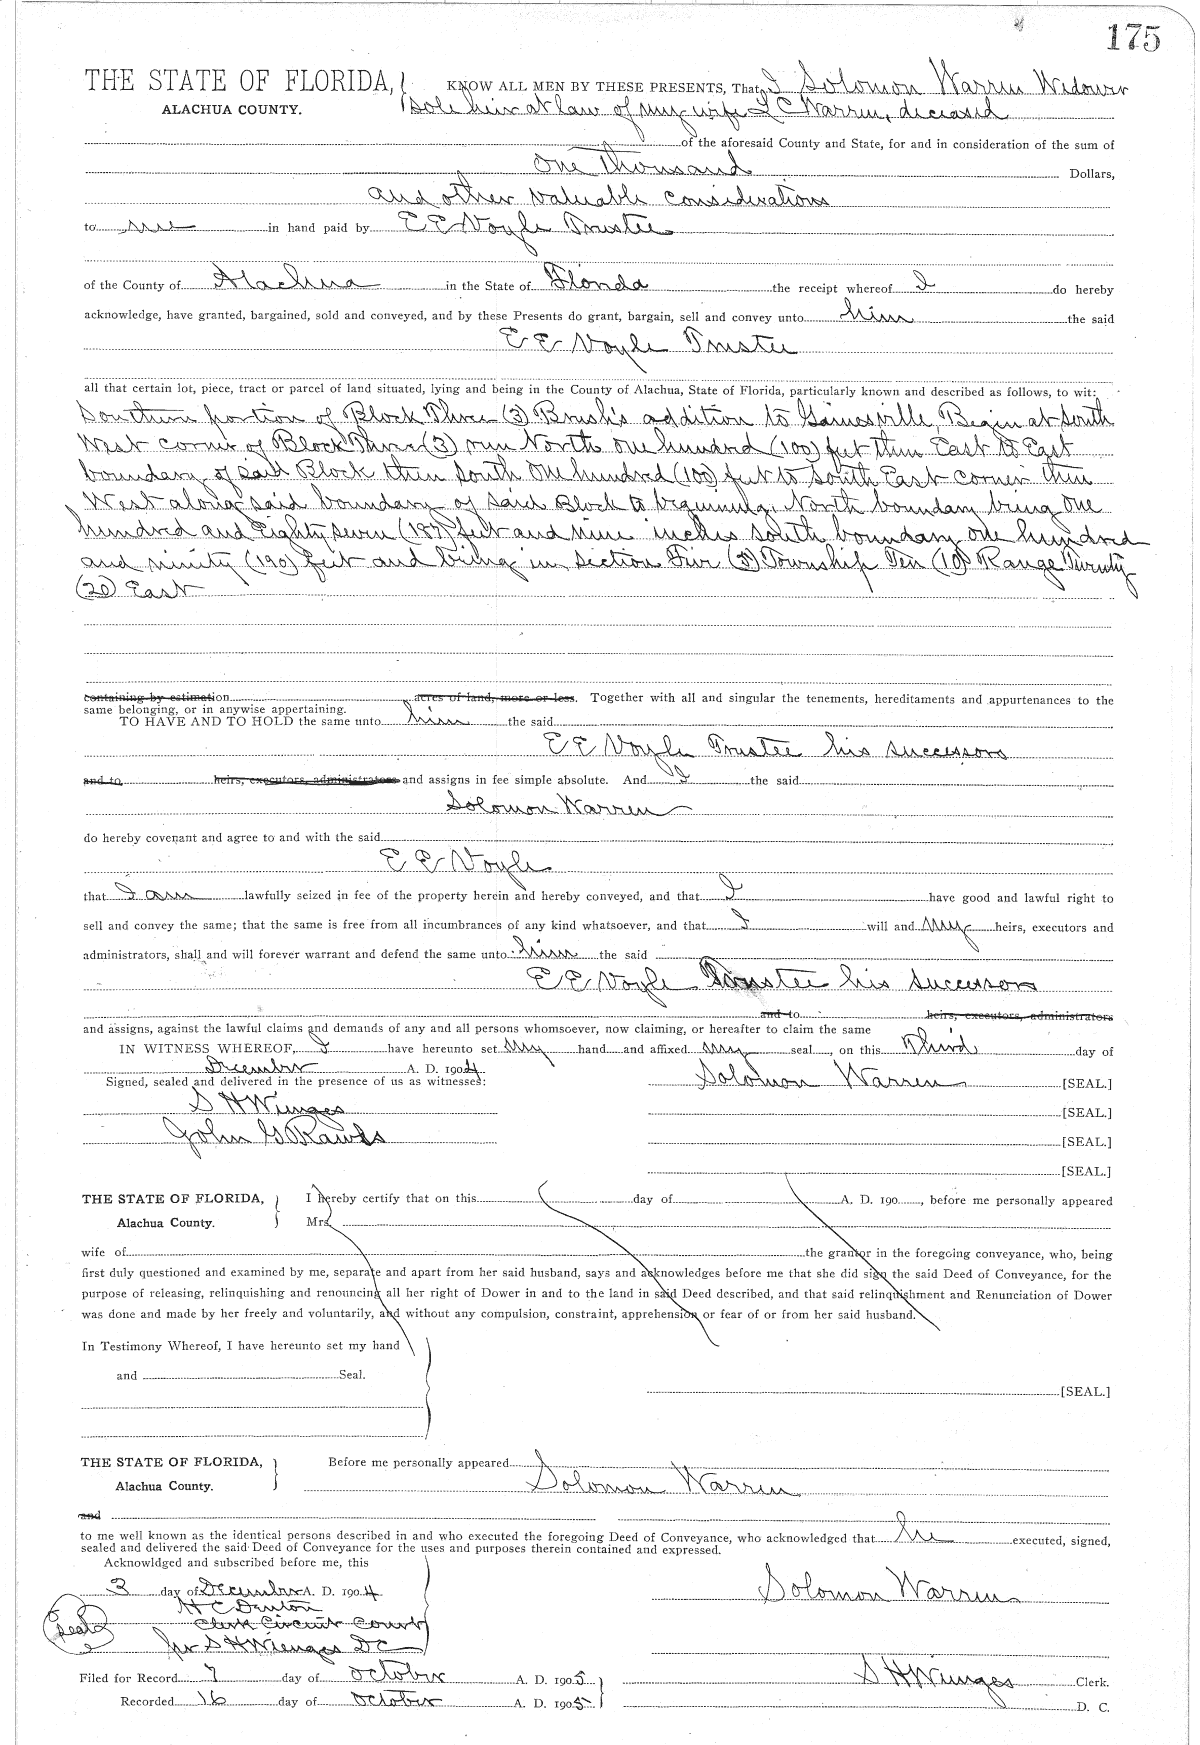 175
THE STATE OF FLORIDA, KNOW ALL MEN BY THESE PRESENTS, That I Solomon Warren Widower
ALACHUA COUNTY. sole heir at law of my wife L C Warren, deceased
of the aforesaid County and State, for and in consideration of the sum of
One Thousand Dollars,
and other valuable considerations
to me in hand paid by E E Voyle Trustee
of the County of Alachua in the State of Florida the receipt whereof I do hereby
acknowledge, have granted, bargained, sold and conveyed, and by these Presents do grant, bargain, sell and convey unto him the said
E E Voyle Trustee
all that certain lot, piece, tract or parcel of land situated, lying and being in the County of Alachua, State of Florida, particularly known and described as follows, to wit:
Southern portion of Block Three (3) Brush's addition to Gainesville, Begin at South
West corner of Block Three (3) run North one hundred (100) feet then East to East
boundary of said Block then South one hundred (100) feet to South East corner then
West along said boundary of said Block to beginning, North boundary being one
hundred and Eighty seven (187) feet and nine inches South boundary one hundred
and ninety (190) feet and being in Section Five (5) Township Ten (10) Range Twenty
(20) East
containing by estimation acres of land, more or less. Together with all and singular the tenements, hereditaments and appurtenances to the
same belonging, or in anywise appertaining.
TO HAVE AND TO HOLD the same unto him the said
E E Voyle Trustee his successors
and to heirs, executors, administrators and assigns in fee simple absolute. And I the said
Solomon Warren
do hereby covenant and agree to and with the said
E E Voyle
that I am lawfully seized in fee of the property herein and hereby conveyed, and that I have good and lawful right to
sell and convey the same; that the same is free from all incumbrances of any kind whatsoever, and that I will and my heirs, executors and
administrators, shall and will forever warrant and defend the same unto him the said
E E Voyle Trustee his successors
and to heirs, executors, administrators
and assigns, against the lawful claims and demands of any and all persons whomsoever, now claiming, or hereafter to claim the same
IN WITNESS WHEREOF, I have hereunto set my hand and affixed my seal, on this Third day of
December A. D. 1904
Signed, sealed and delivered in the presence of us as witnesses: Solomon Warren [SEAL.]
S H Wienges [SEAL.]
John G Rawls [SEAL.]
[SEAL.]
THE STATE OF FLORIDA, I hereby certify that on this day of A. D. 190 , before me personally appeared
Alachua County. Mrs
wife of the grantor in the foregoing conveyance, who, being
first duly questioned and examined by me, separate and apart from her said husband, says and acknowledges before me that she did sign the said Deed of Conveyance, for the
purpose of releasing, relinquishing and renouncing all her right of Dower in and to the land in said Deed described, and that said relinquishment and Renunciation of Dower
was done and made by her freely and voluntarily, and without any compulsion, constraint, apprehension or fear of or from her said husband.
In Testimony Whereof, I have hereunto set my hand
and Seal.
[SEAL.]
THE STATE OF FLORIDA, Before me personally appeared
Alachua County. Solomon Warren
and
to me well known as the identical persons described in and who executed the foregoing Deed of Conveyance, who acknowledged that he executed, signed,
sealed and delivered the said Deed of Conveyance for the uses and purposes therein contained and expressed.
Acknowldged and subscribed before me, this
3 day of December A. D. 1904 Solomon Warren
H C Denton
seal Clerk Circuit Court
per S H Wienges DC
Filed for Record 7 day of October A. D. 1905 S H Wienges Clerk.
Recorded 16 day of October A. D. 1905 D. C.